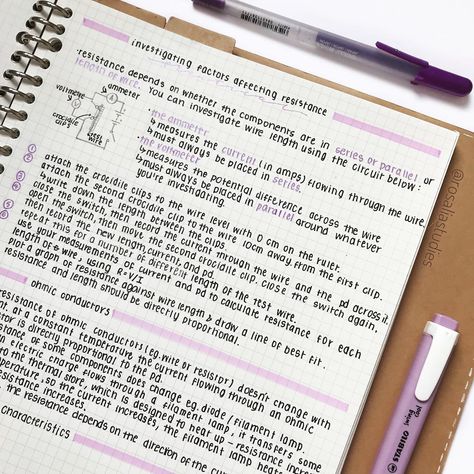 investigating factors affecting resistance
resistance depends on whether the components are in series or parallel or
length of wire. You can investigate wire length using the circuit below:
voltmeter
ammeter
crocodile clips
test wire
the ammeter
↳ measures the current (in amps) flowing through the wire.
↳ must always be placed in series.
the voltmeter
↳ measures the potential difference across the wire
↳ must always be placed in parallel around whatever
you're investigating.
① attach the crocodile clips to the wire level with 0 cm on the ruler.
② attach the second crocodile clip to the wire 10cm away from the first clip.
write down the length between the clips.
close the switch, then record the current through the wire and the pd across it.
open the switch, then move the second crocodile clip, close the switch again,
then record the new length, current, and pd.
repeat this for a number of different length of the test wire.
use your measurements of current and pd to calculate resistance for each
length of wire, using R=V/I
plot a graph of resistance against wire length & draw a line of best fit.
resistance and length should be directly proportional.
ohmic conductors
resistance of ohmic conductors (eg wire or resistor) doesn't change with
at a constant temperature, the current flowing through an ohmic
is directly proportional to the pd.
resistance of some components does change eg. diode/filament lamp.
electric charge flows through a filament lamp, it transfers some
to the thermal store, which is designed to heat up - resistance
temperature, so the current increases, the filament lamp heats
resistance increases.
the resistance depends on the direction of the
characteristics
@rosaliastudies
STABILO
swing
cool